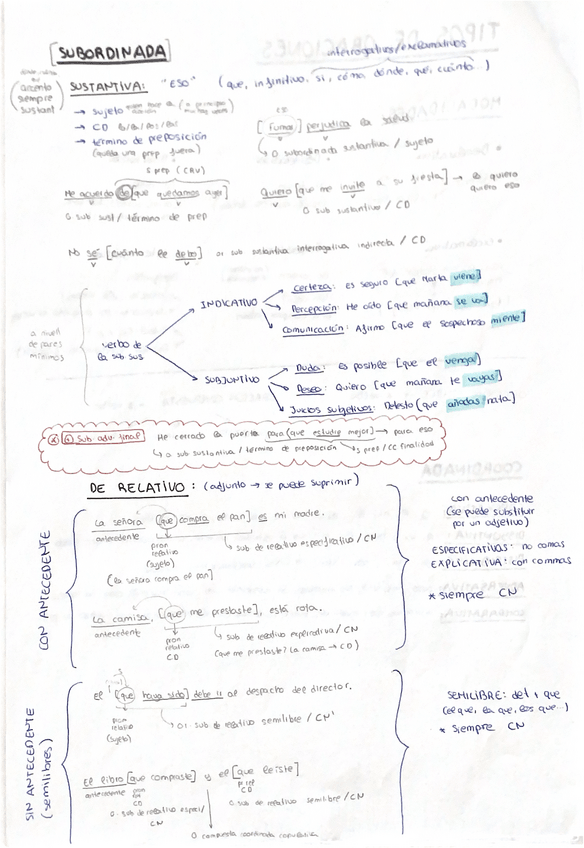 SUBORDINADA
interrogativos/exclamativos
SUSTANTIVA: "ESO" (que, infinitivo, si, cómo, dónde, qué, cuánto)
acento
siempre
sustant
→ sujeto
→ CD lo/la/los/las
→ término de preposición
(queda una prep fuera)
eso
[fumar] perjudica la salud.
V V
O subordinada sustantiva / sujeto
S prep (CRV)
Me acuerdo de [que quedamos ayer]
V V
O sub sust / término de prep
Quiero [que me invite a su fiesta] → lo quiero
quiero eso
O sub sustantiva / CD
No sé [cuánto le debo] or sub sustantiva interrogativa indirecta / CD
V V
a nivel
de pares
mínimos
verbo de
la sub sus
INDICATIVO
certeza: Es seguro [que Marta viene]
Percepción: He oído [que mañana se va]
Comunicación: Afirmo [que el sospechoso miente]
SUBJUNTIVO
Duda: es posible [que él venga]
Deseo: Quiero [que mañana te vayas]
Juicios subjetivos: Detesto [que añadas nata]
Sub. adv. final He cerrado la puerta para [que estudie mejor] → para eso
O sub sustantiva / término de preposición S prep / CC finalidad
DE RELATIVO: (adjunto → se puede suprimir)
CON ANTECEDENTE
La señora [que compra el pan] es mi madre.
antecedente
pron
relativo
(sujeto)
sub de relativo especificativa / CN
(la señora compra el pan)
La camisa, [que me prestaste], está rota.
antecedente
pron
relativo
CD
sub de relativo explicativa / CN
(que me prestaste? La camisa → CD)
con antecedente
(se puede substituir
por un adjetivo)
ESPECIFICATIVAS: no comas
EXPLICATIVA: con commas
* siempre CN
SIN ANTECEDENTE
(semilibres)
El [que haya sido] debe ir al despacho del director.
pron
relativo
(sujeto)
or. sub de relativo semilibre / CN
El libro [que compraste] y el [que leíste]
antecedente
pron
rel
CD
p rel
CD
O. sub de relativo especi /
CN
O sub de relativo semilibre / CN
O compuesta coordinada copulativa
SEMILIBRE: det + que
(el que, la que, los que...)
* siempre CN